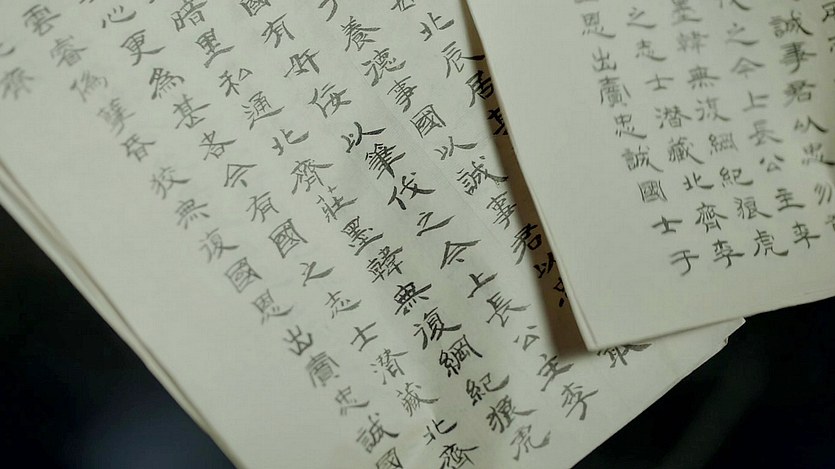 誠事君以忠勿
之今上長公主李
墨韓無復綱紀狼虎
之志士潛藏北齊李
恩出廣忠誠國士于
北辰居其
養德事國以誠事君以忠
國有奸佞以筆伐之今上長公主李
暗里私通北齊莊墨韓無復綱紀狼虎
心更為甚各今有國之志士潛藏北齊
雲睿偽孽昏狡無復國恩出廣忠誠國
齊